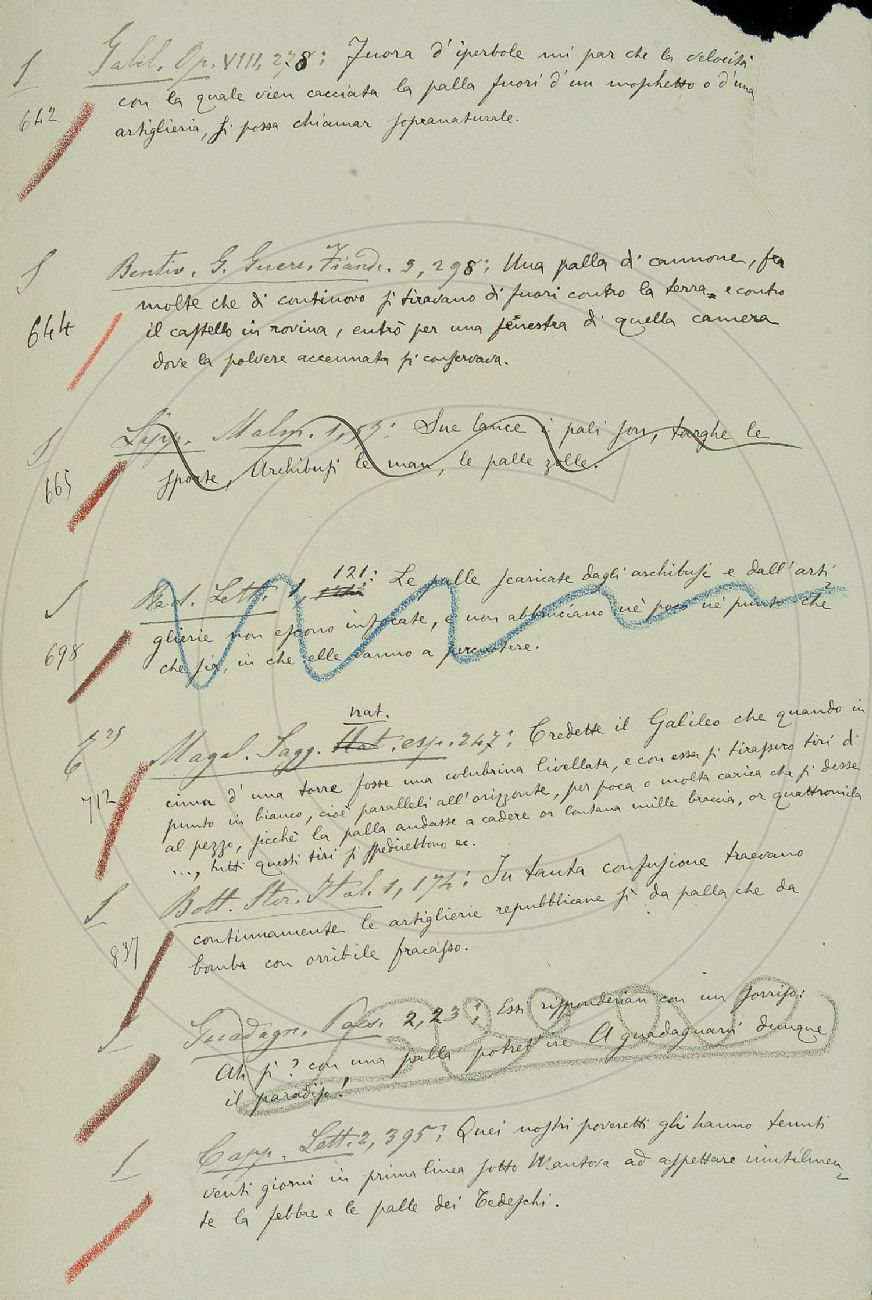 S Galil. Op. VIII, 278: Fuora d'iperbole mi par che la velocità
con la quale vien cacciata la palla fuori d'un moschetto o d'una
642 artiglieria, si possa chiamar sopranaturale.
S Bentiv. G. Guerr. Fiand. 3, 298: Una palla di cannone, fra
molte che di continovo si tiravano di fuori contro la terra e contro
644 il castello in rovina, entrò per una fenestra di quella camera
dove la polvere accennata si conservava.
S Lipp. Malm. 1, : Sue lance i pali son, targhe le
665 sporte, Archibusi le man, le palle zolle.
121
S Red. Lett. 1, : Le palle scaricate dagli archibusi e dall'arti-
698 glierie non escono infocate, e non abbruciano nè poco nè punto che
che sia, in che elle vanno a percuotere.
nat.
Magal. Sagg. Nat. esp. 247: Credette il Galileo che quando in
712 cima d'una torre fosse una colubrina livellata, e con essa si tirassero tiri di
punto in bianco, cioè paralleli all'orizzonte, per poca o molta carica che si desse
al pezzo, sicchè la palla andasse a cadere or lontana mille braccia, or quattromila
..., tutti questi tiri si spedirebbono ec.
S Bott. Stor. Ital. 1, 174: In tanta confusione traevano
837 continuamente le artiglierie repubblicane sì da palla che da
bomba con orribile fracasso.
S Guadagn. Poes. 2, 23: Essi risponderian con un sorriso:
Ah sì? con una palla potret'ire A guadagnarvi dunque
il paradiso!
S Capp. Lett. 2, 395: Quei nostri poveretti gli hanno tenuti
venti giorni in prima linea sotto Mantova ad aspettare inutilmen-
te la febbre e le palle dei Tedeschi.